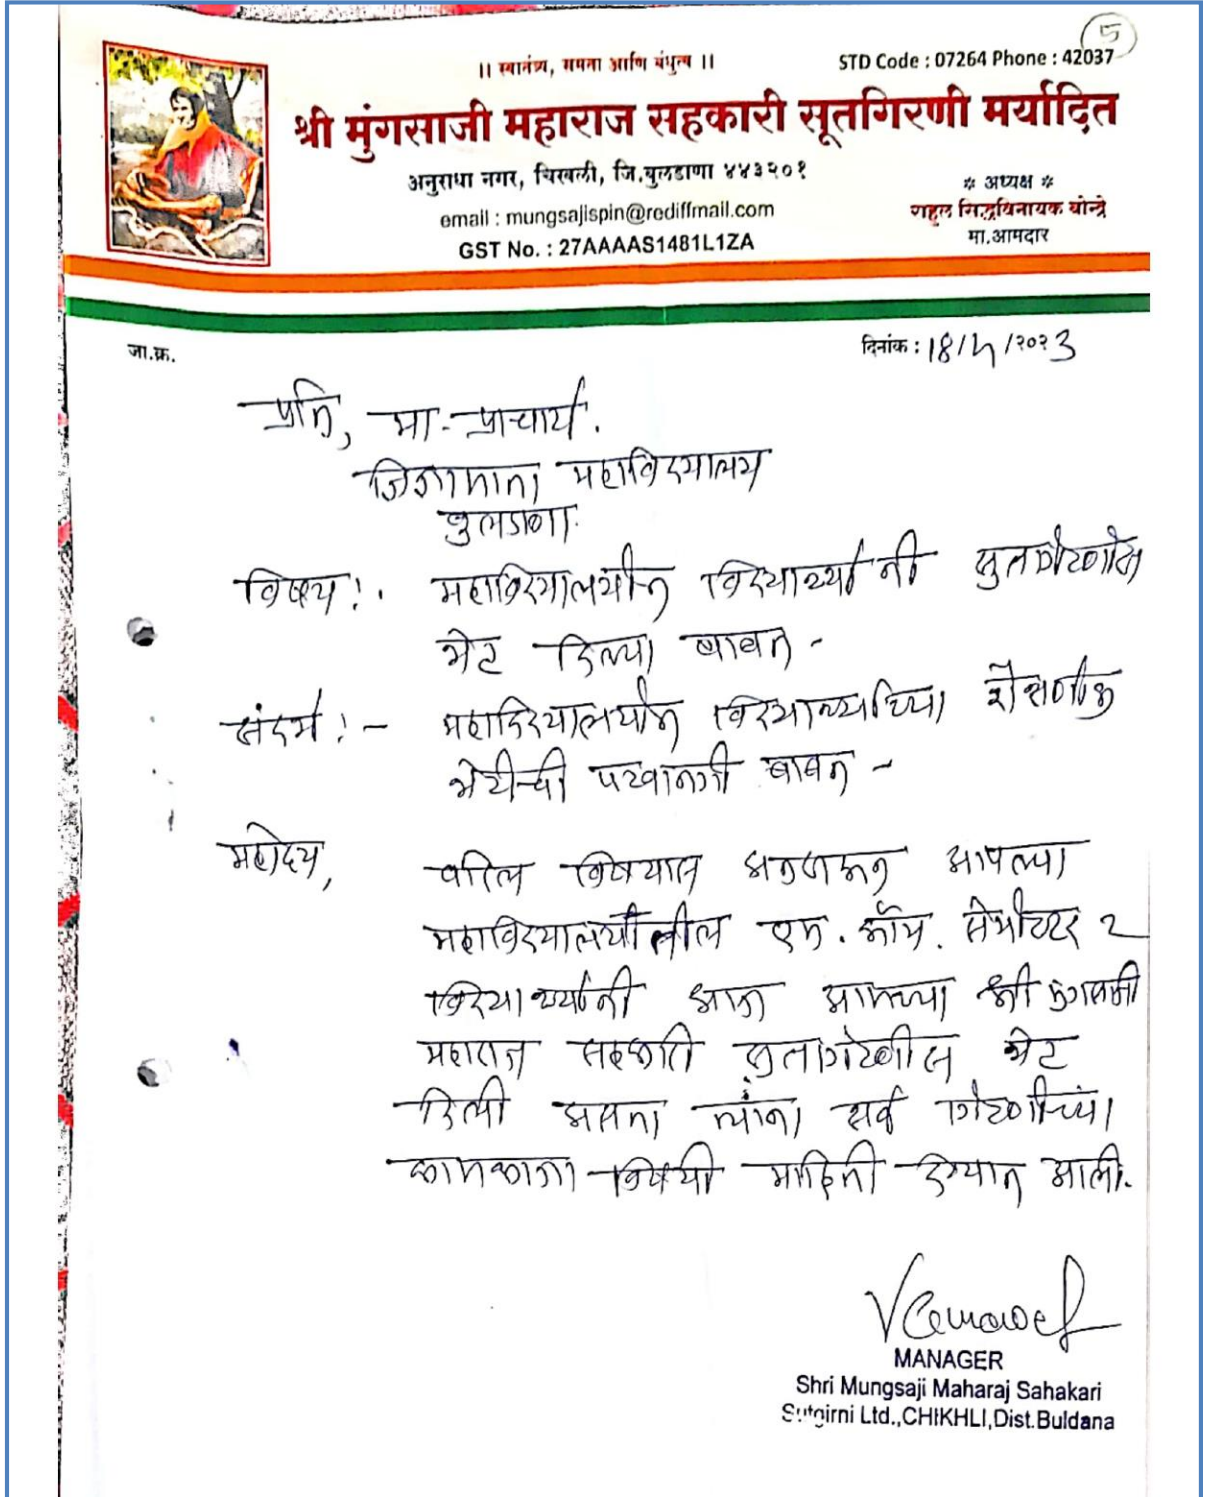 5
।। स्वातंत्र्य, समता आणि बंधुत्व ।।
STD Code : 07264 Phone : 42037
श्री मुंगसाजी महाराज सहकारी सूतगिरणी मर्यादित
अनुराधा नगर, चिखली, जि.बुलडाणा ४४३२०१
email : mungsajispin@rediffmail.com
GST No. : 27AAAAS1481L1ZA
❊ अध्यक्ष ❊
राहुल सिद्धविनायक बोन्द्रे
मा.आमदार
जा.क्र.
दिनांक : 18/ /२०२3
प्रति, मा. प्राचार्य.
जिजामाता महाविद्यालय
बुलडाणा
विषय :. महाविद्यालयीन विद्यार्थ्यांनी सुतगीरणीस
भेट दिल्या बाबत -
संदर्भ :- महाविद्यालयीन विद्यार्थ्यांच्या शैक्षणीक
भेटीची परवानगी बाबत -
महोदय,
वरिल विषयास अनुसरून आपल्या
महाविद्यालयीतील एम. कॉम. सेमीस्टर २
विद्यार्थ्यांनी आज आमच्या श्री मुंगसाजी
महाराज सहकारी सुतगिरणीस भेट
दिली असता त्यांना सर्व गिरणीच्या
कामकाजा विषयी माहिती देण्यात आली.
MANAGER
Shri Mungsaji Maharaj Sahakari
Sutgirni Ltd.,CHIKHLI,Dist.Buldana